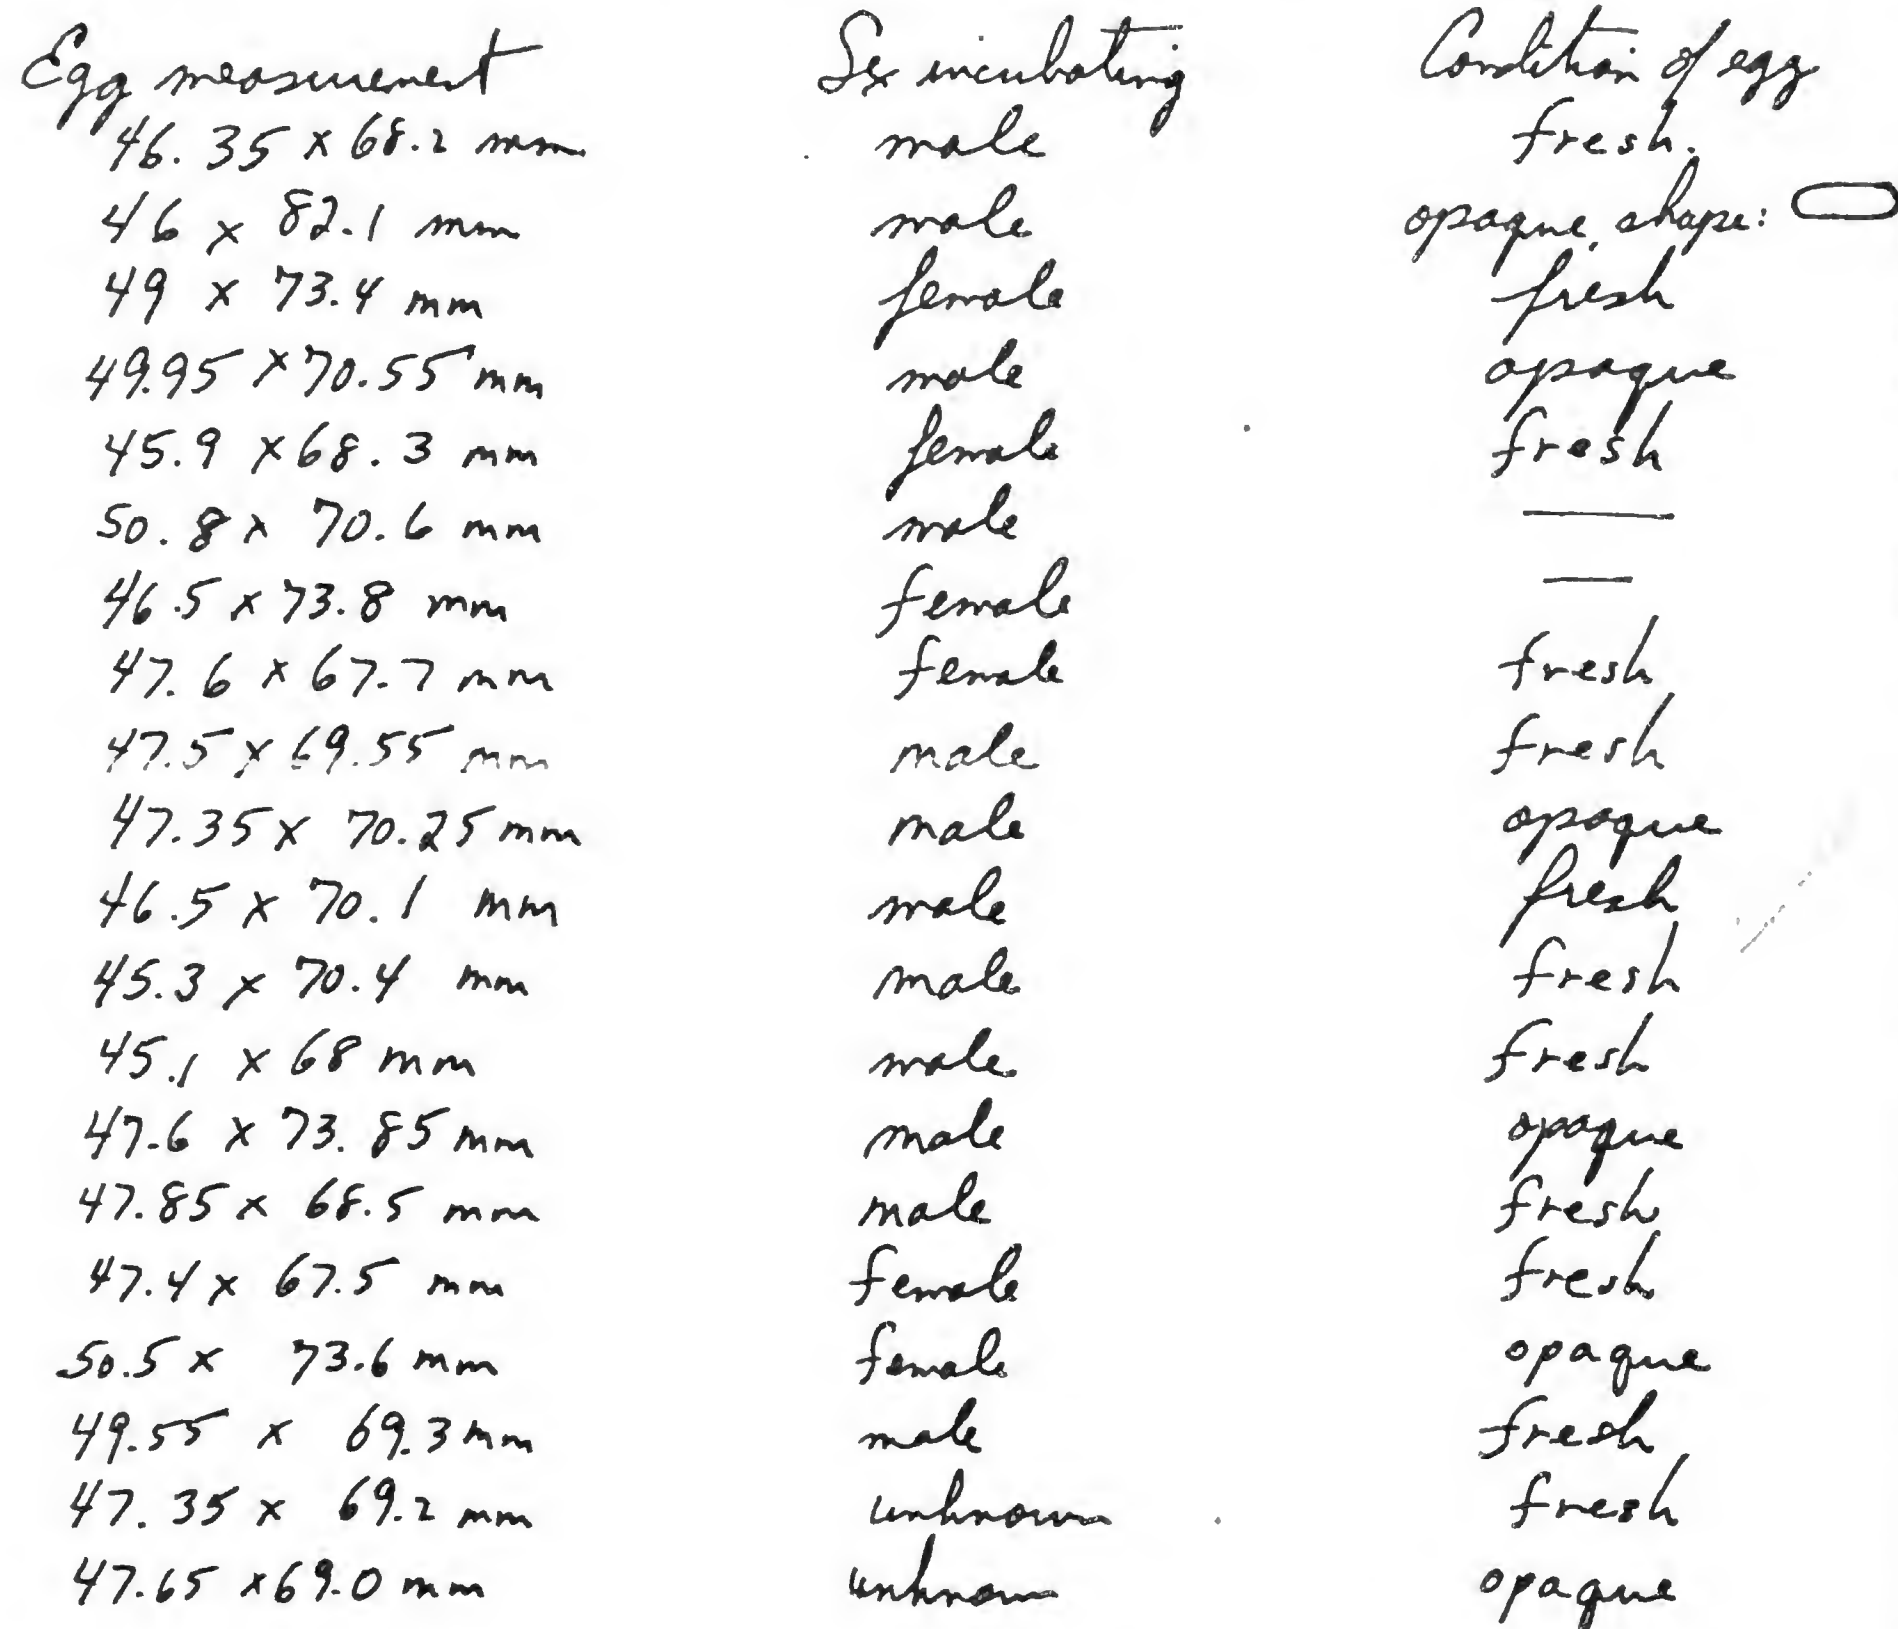 Egg measurement Sex incubating Condition of egg
46.35 x 68.2 mm male fresh.
46 x 82.1 mm male opaque, shape:
49 x 73.4 mm female fresh
49.95 x 70.55 mm male opaque
45.9 x 68.3 mm female fresh
50.8 x 70.6 mm male —
46.5 x 73.8 mm female —
47.6 x 67.7 mm female fresh
47.5 x 69.55 mm male fresh
47.35 x 70.25 mm male opaque
46.5 x 70.1 mm male fresh
45.3 x 70.4 mm male fresh
45.1 x 68 mm male fresh
47.6 x 73.85 mm male opaque
47.85 x 68.5 mm male fresh
47.4 x 67.5 mm female fresh
50.5 x 73.6 mm female opaque
49.55 x 69.3 mm male fresh
47.35 x 69.2 mm unknown fresh
47.65 x 69.0 mm unknown opaque